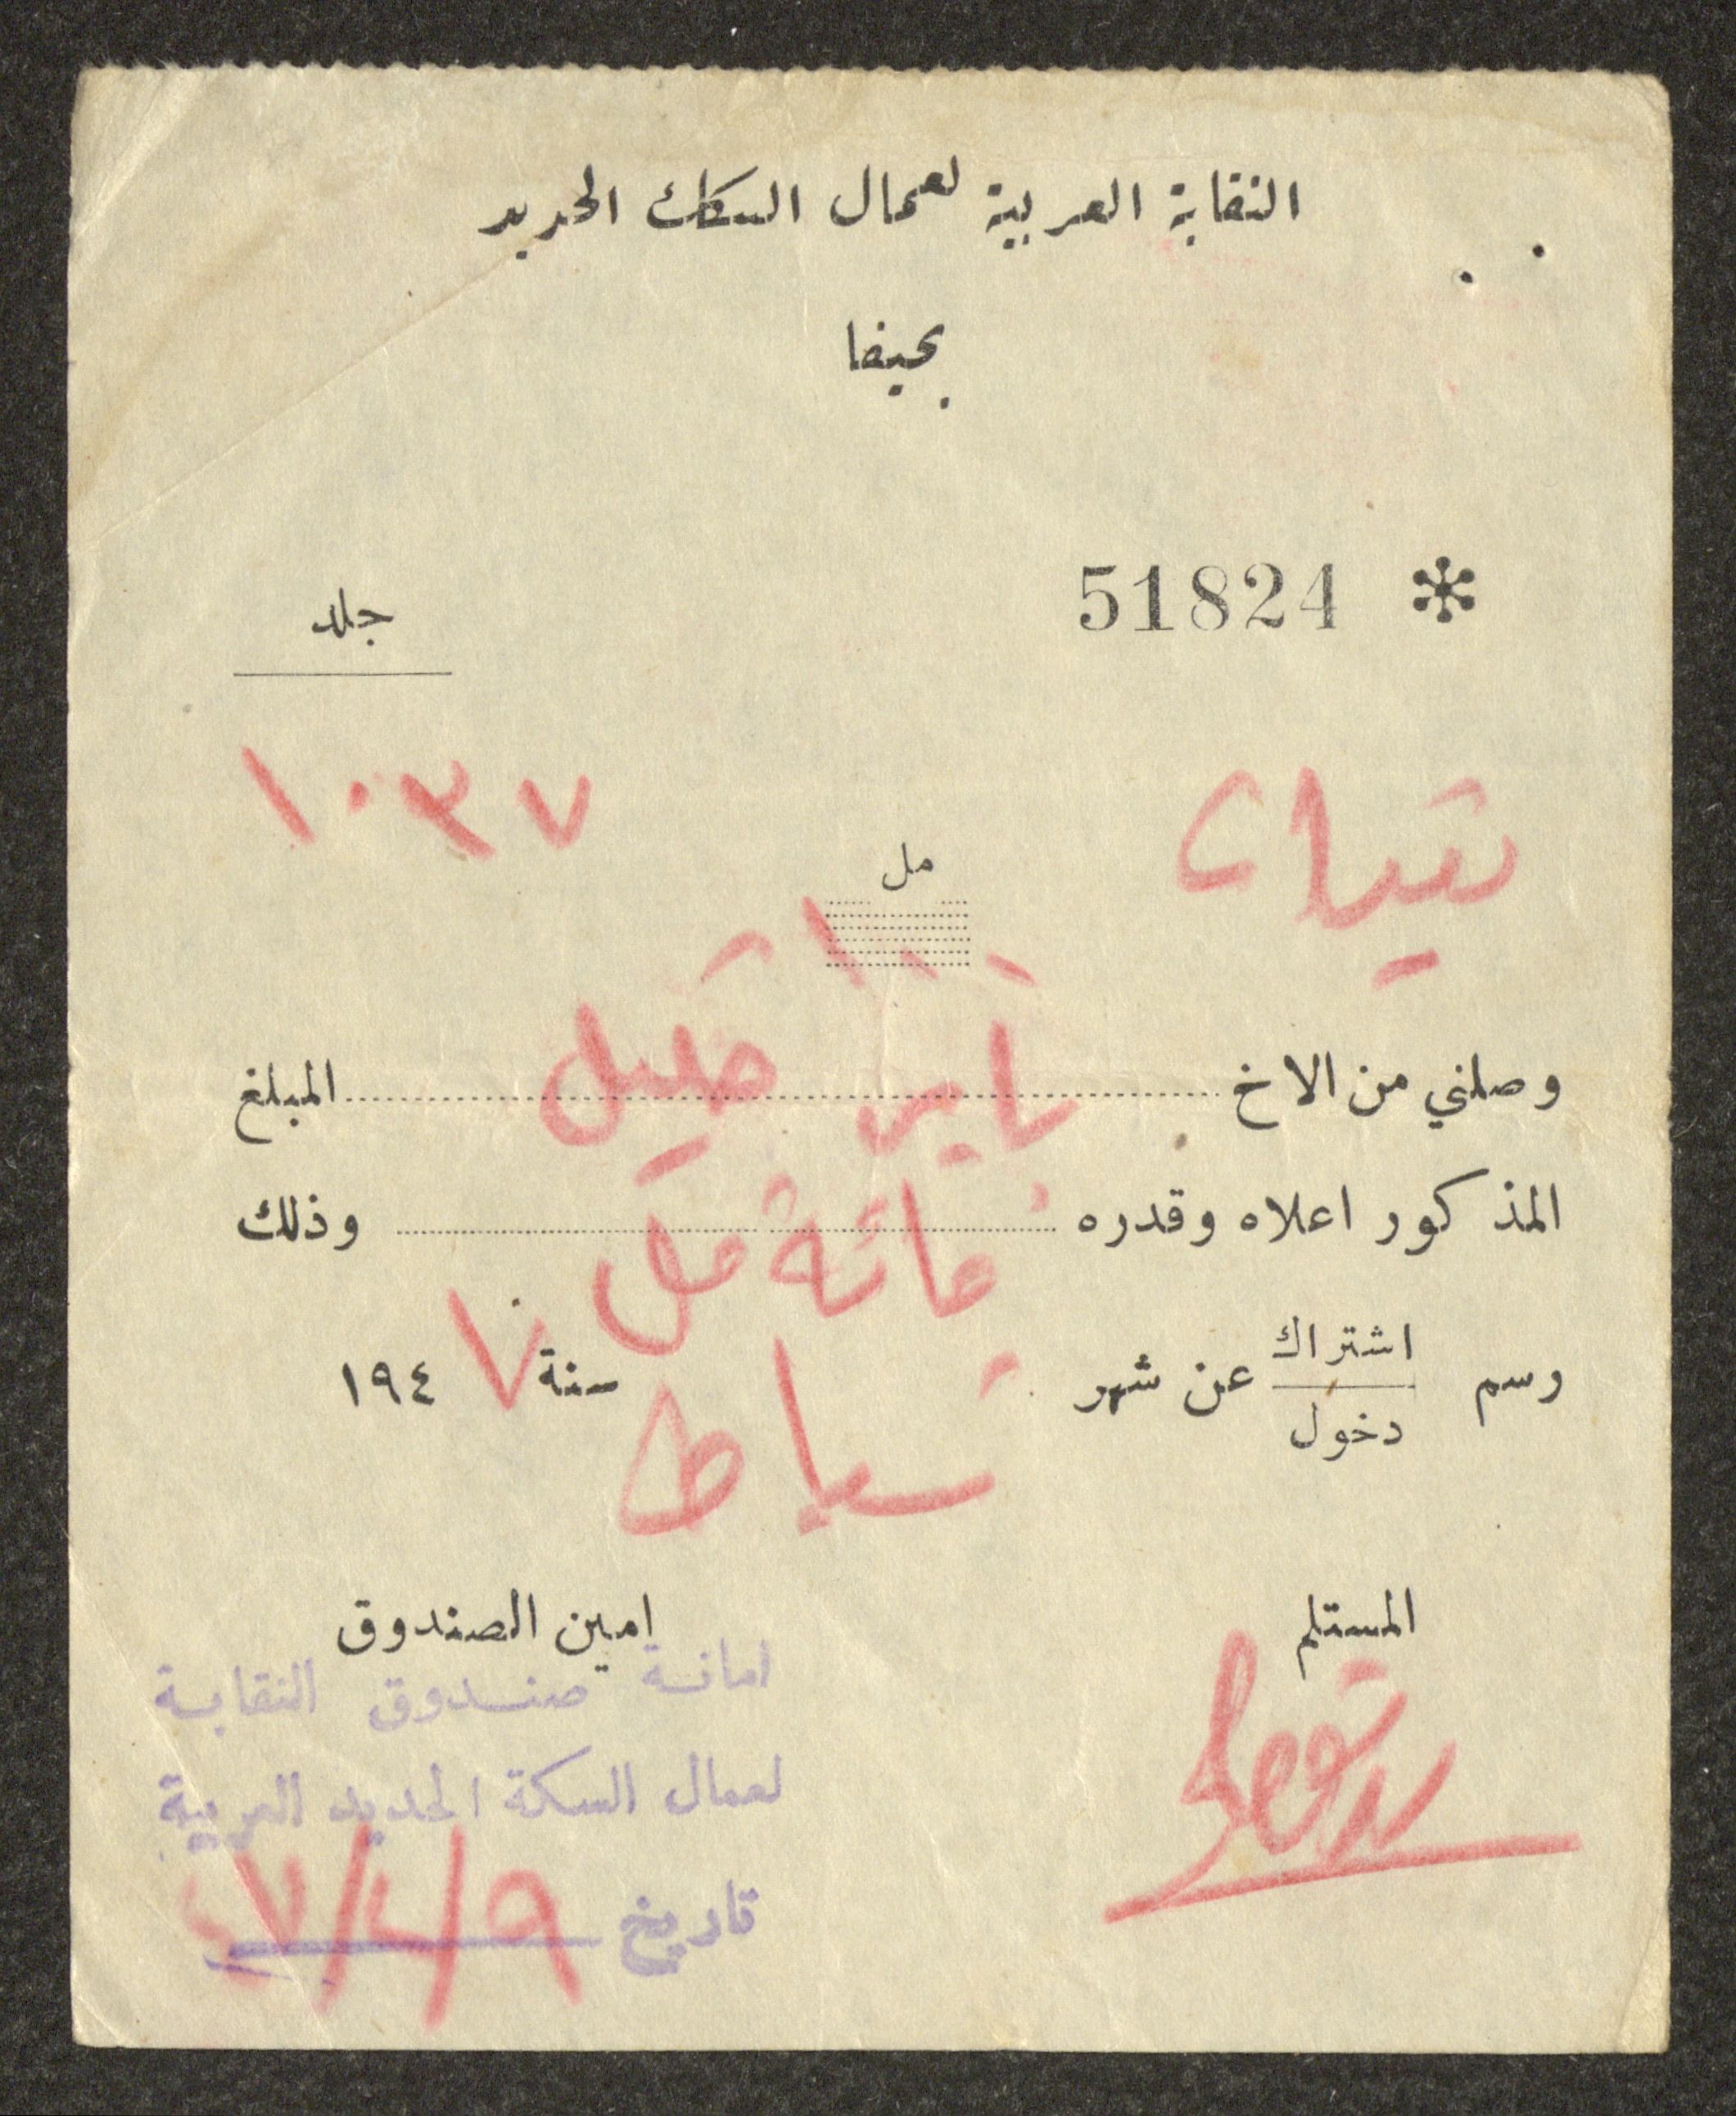 النقابة العربية لعمال السكك الحديد
بحيفا
51824
جلد
١٠٣٧
مل
١٠٠
وصلني من الاخ خليل المبلغ
المذكور اعلاه وقدره مائة مل وذلك
رسم اشتراك عن شهر شباط سنة ١٩٤٧
دخول
المستلم
امين الصندوق
امانة صندوق النقابة
لعمال السكة الحديد العربية
تاريخ